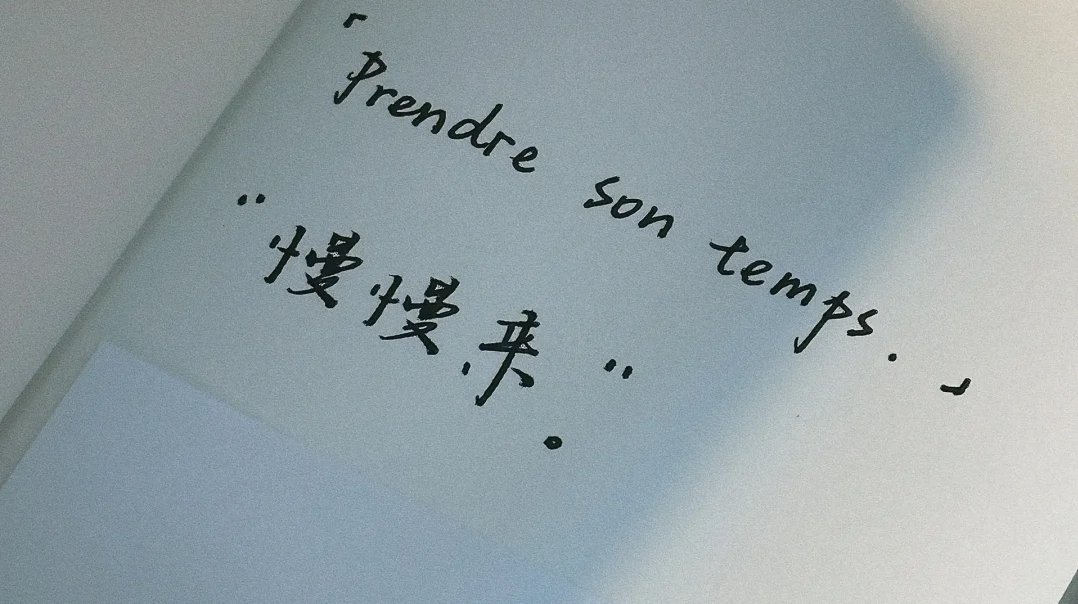 「Prendre son temps.」
"慢慢来"。